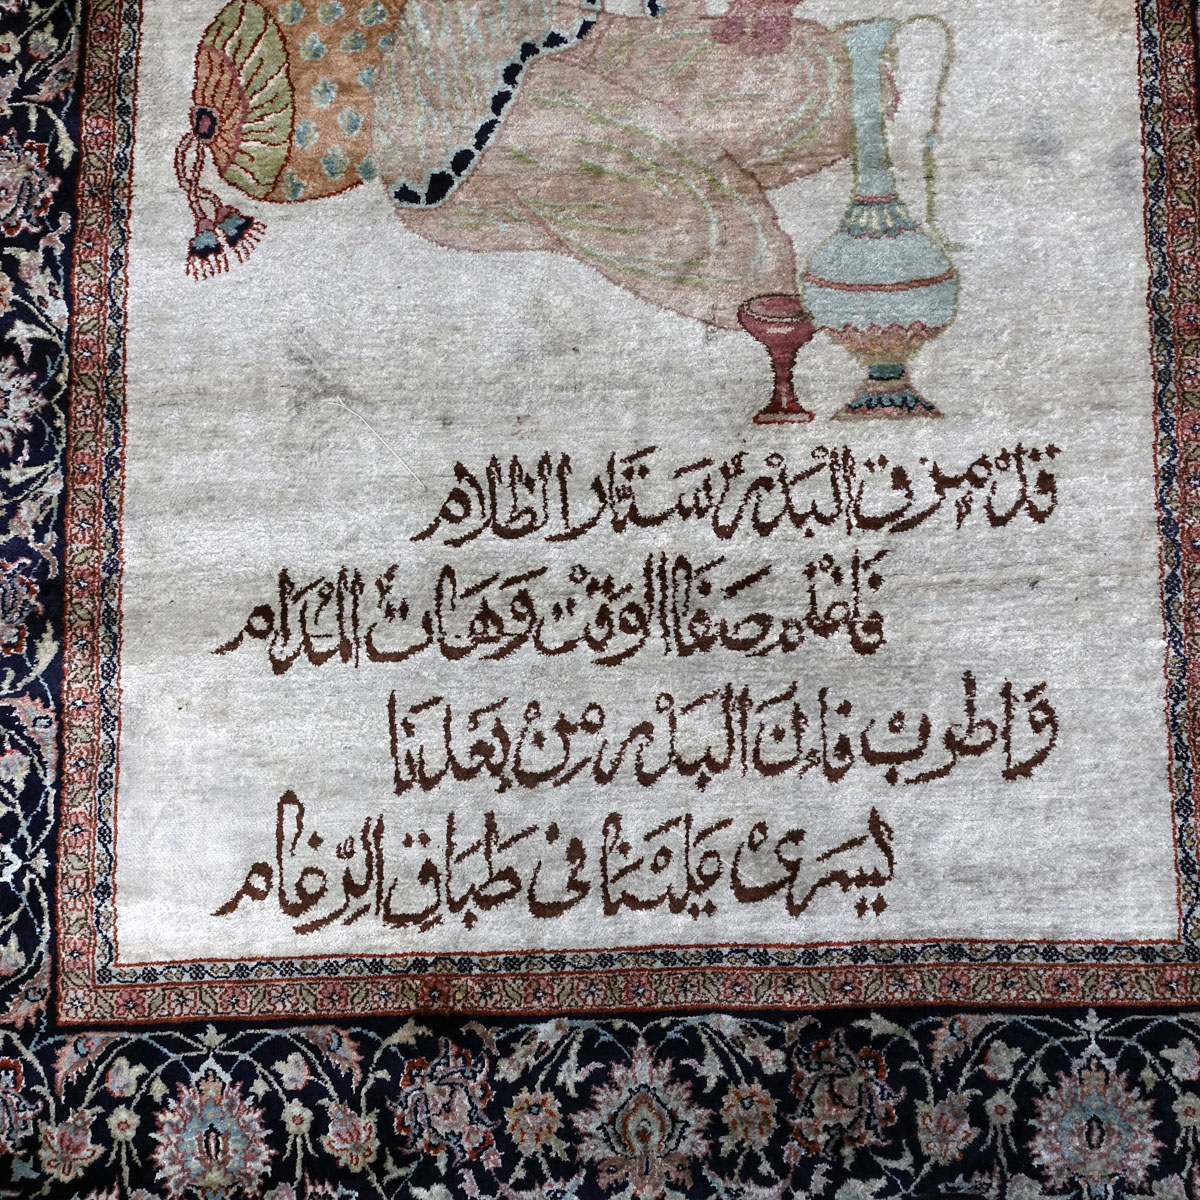 قد مزق البدر ستار الظلام
فاغنم صفا الوقت وهات المدام
واطرب فإن البدر من بعدنا
يسرى علينا فى طباق الرغام